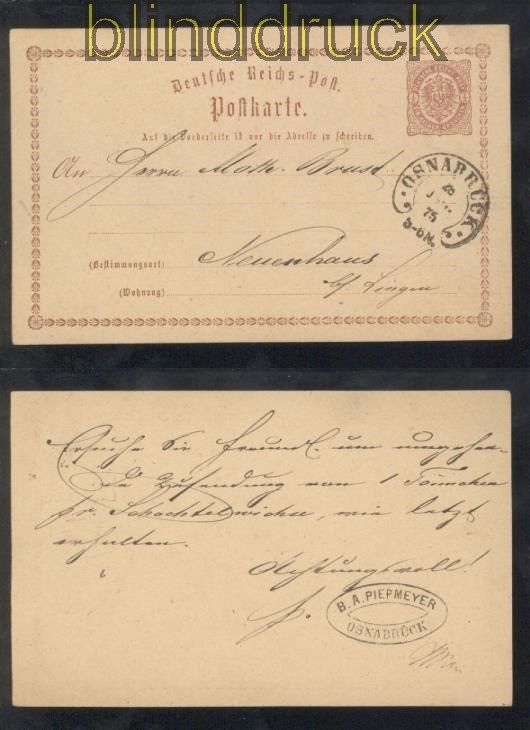 blinddruck
Deutsche Reichs-Post.
Postkarte.
Auf die Vorderseite ist nur die Adresse zu schreiben.
An Herrn Math. Brust
OSNABRÜCK
26
75
5-6N.
(Bestimmungsort) Neuenhaus
(Wohnung) bf. Lingen
Ersuche Sie freundl. um umgehen-
de Zusendung von 1 Tönnchen
pr. Schachtelwichse, wie letzt
erhalten.
Achtungsvoll!
p.
B. A. PIEPMEYER
OSNABRÜCK